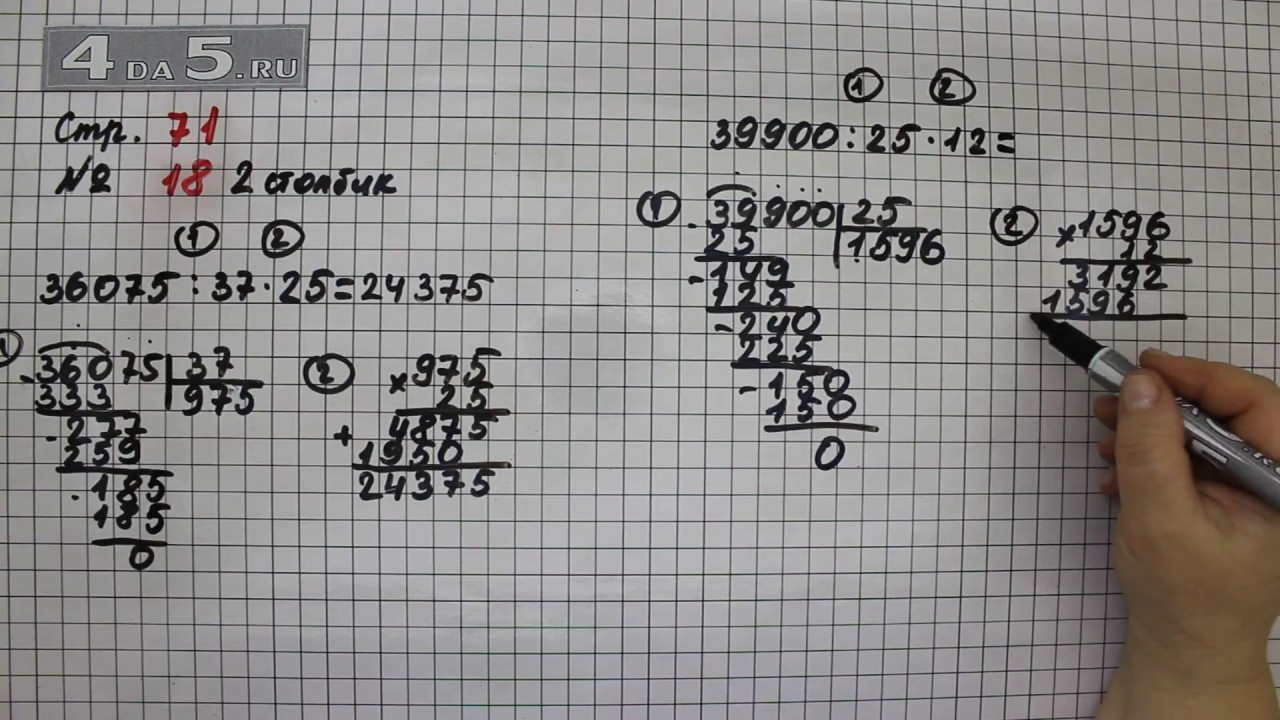 4 DA 5.RU
Стр. 71
№ 18 2 столбик
① ②
36075:37·25=24375
①
-36075 | 37
333 | 975
-277
259
-185
185
0
②
×975
25
+4875
1950
24375
① ②
39900:25·12=
①
-39900 | 25
25 | 1596
-149
125
-240
225
-150
150
0
②
×1596
12
3192
1596